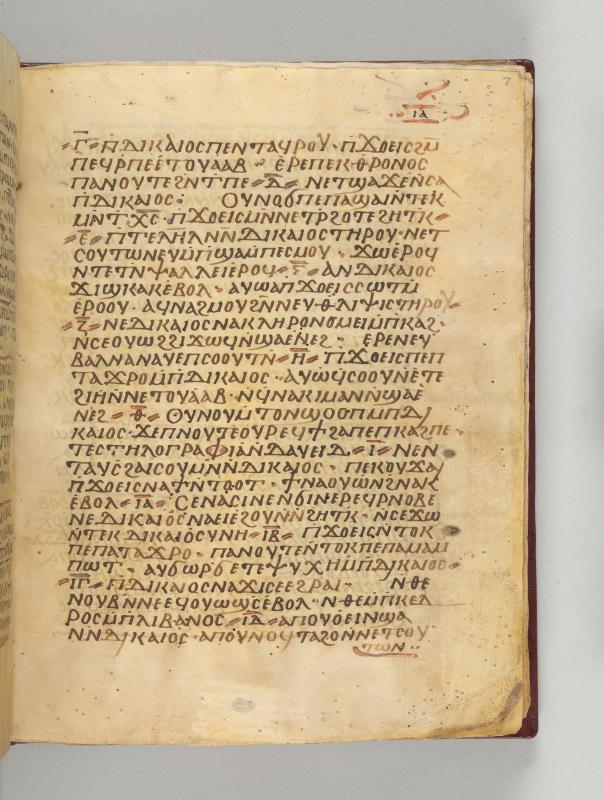 7
ⲓ︤ⲁ︥
ⲅ̅ ⲡ̄ⲇⲓⲕⲁⲓⲟⲥ ⲡⲉⲛⲧⲁϥⲣⲟⲩ · ⲡϫⲟⲉⲓⲥ ϩⲙ
ⲡⲉϥⲣⲡⲉ ⲉⲧⲟⲩⲁⲁⲃ · ⲉⲣⲉⲡⲉⲕⲑⲣⲟⲛⲟⲥ
ⲡⲁⲛⲟⲩⲧⲉ ϩⲛⲧⲡⲉ ⲇ̅ ⲛⲉⲧϣⲁϫⲉⲛⲥⲁ
ⲡⲇⲓⲕⲁⲓⲟⲥ : ⲟⲩⲛⲟϭ ⲡⲉ ⲡⲁϣⲁⲓ ⲛⲧⲉⲕ
ⲙⲛⲧ · ⲭ̅ⲥ̅ · ⲡϫⲟⲉⲓⲥ ⲙⲛⲛⲉⲧⲣϩⲟⲧⲉ ϩⲏⲧⲕ
ⲉ̅ ⲡⲧⲉⲗⲏⲗ ⲛⲛⲇⲓⲕⲁⲓⲟⲥ ⲧⲏⲣⲟⲩ · ⲛⲉⲧ
ⲥⲟⲩⲧⲱⲛ ⲉⲩⲙⲡϣⲁ ⲙⲡⲉⲥⲙⲟⲩ · ϫⲱ ⲉⲣⲟϥ
ⲛⲧⲉⲧⲛⲯⲁⲗⲗⲉⲓ ⲉⲣⲟϥ · ⲋ̅ ⲁⲛⲇⲓⲕⲁⲓⲟⲥ
ϫⲓϣⲕⲁⲕ ⲉⲃⲟⲗ · ⲁⲩⲱ ⲁⲡϫⲟⲉⲓⲥ ⲥⲱⲧⲙ̄
ⲉⲣⲟⲟⲩ · ⲁϥⲛⲁϩⲙⲟⲩ ϩⲛⲛⲉⲩⲑⲗⲓⲯⲓⲥ ⲧⲏⲣⲟⲩ
ⲍ̅ ⲛⲉⲇⲓⲕⲁⲓⲟⲥ ⲛⲁⲕⲗⲏⲣⲟⲛⲟⲙⲉⲓ ⲙⲡⲕⲁϩ ·
ⲛⲥⲉⲟⲩⲱϩ ϩⲓϫⲱϥ ⲛϣⲁⲉⲛⲉϩ · ⲉⲣⲉⲛⲉⲩ
ⲃⲁⲗ ⲛⲁⲛⲁⲩ ⲉⲡⲥⲟⲟⲩⲧⲛ̄ ⲏ̅ ⲡϫⲟⲉⲓⲥ ⲡⲉⲡ
ⲧⲁϫⲣⲟ ⲙⲡⲇⲓⲕⲁⲓⲟⲥ · ⲁⲩⲱ ϥⲥⲟⲟⲩⲛ ⲉⲧⲉ
ϩⲓⲏ ⲛⲛⲉⲧⲟⲩⲁⲁⲃ · ⲛϥⲛⲁⲕⲓⲙ ⲁⲛ ⲛϣⲁⲉ
ⲛⲉϩ ⲑ̅ ⲟⲩⲛⲟⲩⲙⲧⲟⲛ ϣⲟⲟⲡ ⲙⲡⲇⲓ
ⲕⲁⲓⲟⲥ · ϫⲉ ⲡⲛⲟⲩⲧⲉ ⲟⲩⲣⲉϥϯϩⲁⲡ ⲉⲡⲕⲁϩ ⲡⲉ ·
ⲧⲉⲥⲧⲏⲗⲟⲅⲣⲁⲫⲓⲁ ⲛⲇⲁⲩⲉⲓⲇ ⲓ̅ ⲛⲉⲛ
ⲧⲁⲩⲥϩⲁⲓⲥⲟⲩ ⲙⲛ ⲛⲇⲓⲕⲁⲓⲟⲥ · ⲡⲉⲕⲟⲩϫⲁⲓ
ⲡϫⲟⲉⲓⲥ ⲛⲁϯ ⲛⲧⲟⲟⲧ · ϯⲛⲁⲟⲩⲱⲛϩ ⲛⲁⲕ
ⲉⲃⲟⲗ ⲓ̅ⲁ̅ ⲥⲉⲛⲁϭⲓⲛⲉ ⲛϭⲓ ⲛⲉⲣⲉϥⲣⲛⲟⲃⲉ
ⲛⲉⲇⲓⲕⲁⲓⲟⲥ ⲛⲁⲉⲓ ⲉϩⲟⲩⲛ ⲛϩⲏⲧⲕ · ⲛⲥⲉϫⲱ
ⲛ̄ⲧⲉⲕⲇⲓⲕⲁⲓⲟⲥⲩⲛⲏ ⲓ̅ⲃ̅ ⲡϫⲟⲉⲓⲥ ⲛⲧⲟⲕ
ⲡⲉ ⲡⲁⲧⲁϫⲣⲟ · ⲡⲁⲛⲟⲩⲧⲉ ⲛⲧⲟⲕ ⲡⲉ ⲡⲁⲙⲁⲙ
ⲡⲱⲧ · ⲁⲩϭⲱⲣϭ ⲉⲧⲉⲯⲩⲭⲏ ⲙⲡⲇⲓⲕⲁⲓⲟⲥ
ⲓ̅ⲅ̅ ⲡⲇⲓⲕⲁⲓⲟⲥ ⲛⲁϫⲓⲥⲉ ⲉϩⲣⲁⲓ · ⲛⲑⲉ
ⲛⲟⲩⲃⲛⲛⲉ ⲉϥⲟⲩⲱϣⲥ ⲉⲃⲟⲗ · ⲛⲑⲉ ⲙⲡⲕⲉⲇ
ⲣⲟⲥ ⲙⲡⲗⲓⲃⲁⲛⲟⲥ ⲓ̅ⲇ̅ ⲁⲡⲟⲩⲟⲉⲓⲛ ϣⲁ
ⲛⲛⲇⲓⲕⲁⲓⲟⲥ · ⲁⲡⲟⲩⲛⲟϥ ⲧⲁϩⲟⲛⲛⲉⲧⲥⲟⲩ
ⲧⲱⲛ ··